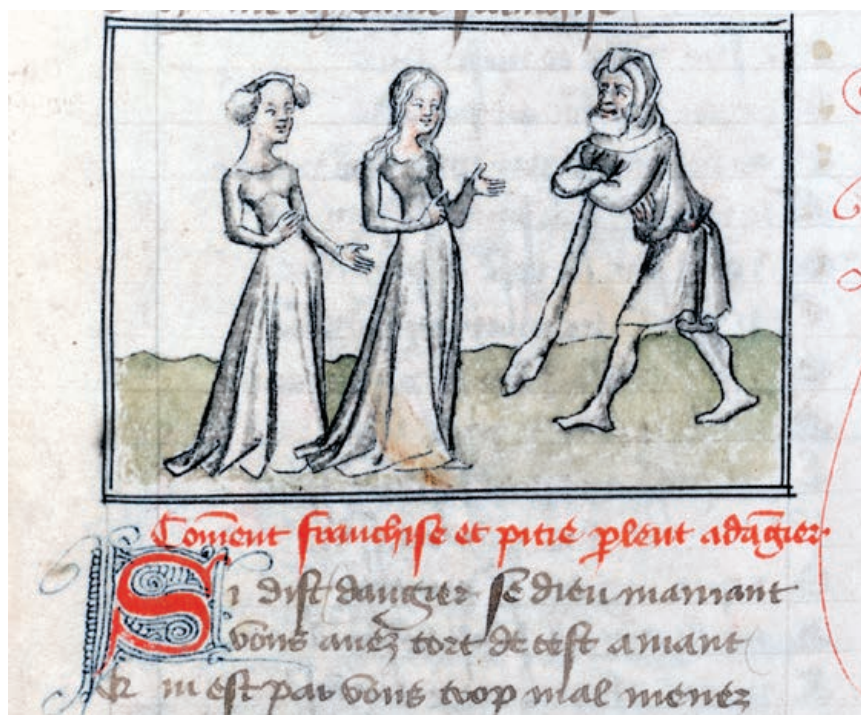 Com̄ent franchise et pitie ꝑlent a dāgier
Si dist dangier se dieu mamant
vous auez tort de cest amant
est par vous trop mal menez